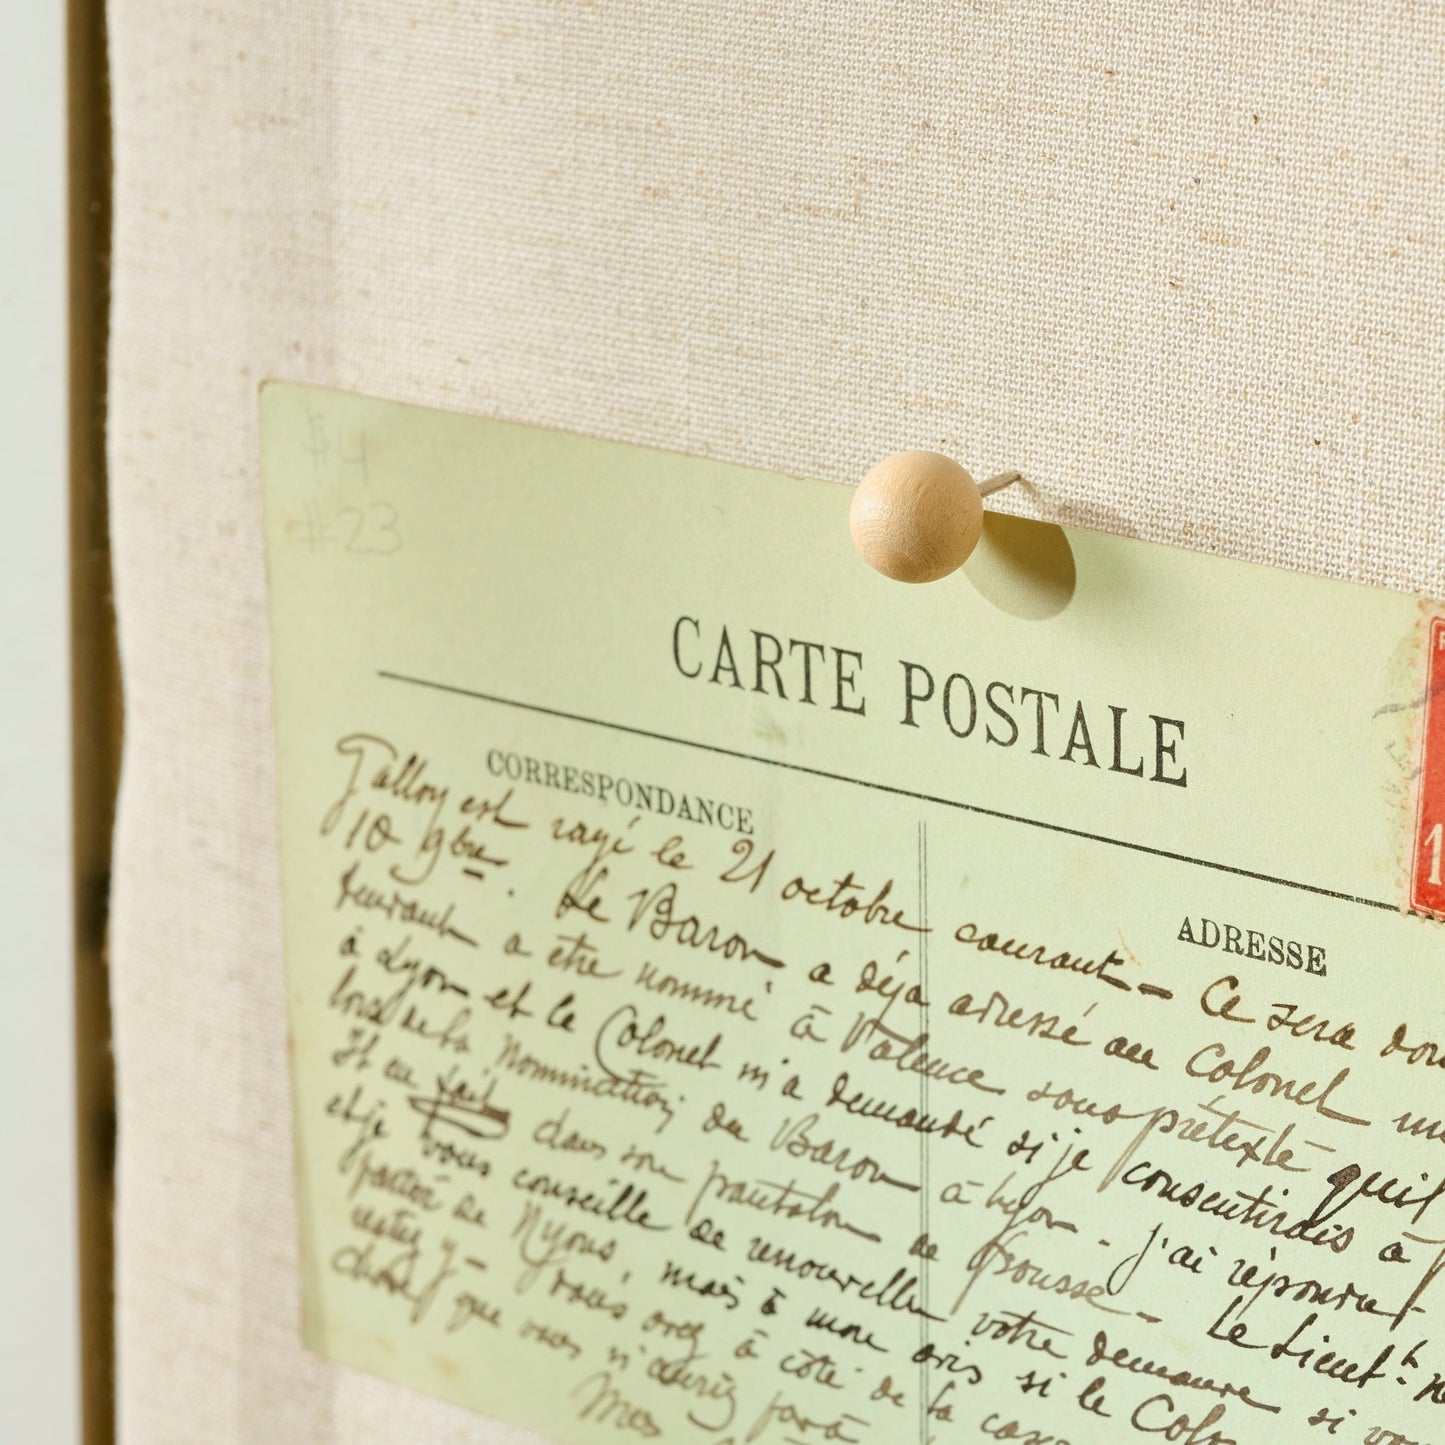 #4
#23
CARTE POSTALE
CORRESPONDANCE
ADRESSE
1
est rayé le 21 octobre courant – Ce sera
10 9bre. Le Baron a déjà adressé au Colonel
a être nommé à Valence sous prétexte qu'il
à Lyon et le Colonel m'a demandé si je consentirais à
lors de la nomination du Baron à Lyon - j'ai répondu
Il en fait dans son pantalon de frousse – Le Lieut^t.
et je vous conseille de renouveller votre demande si
de Nyons, mais à mon avis si le
restez y – vous avez à côté de la
que vous n'auriez